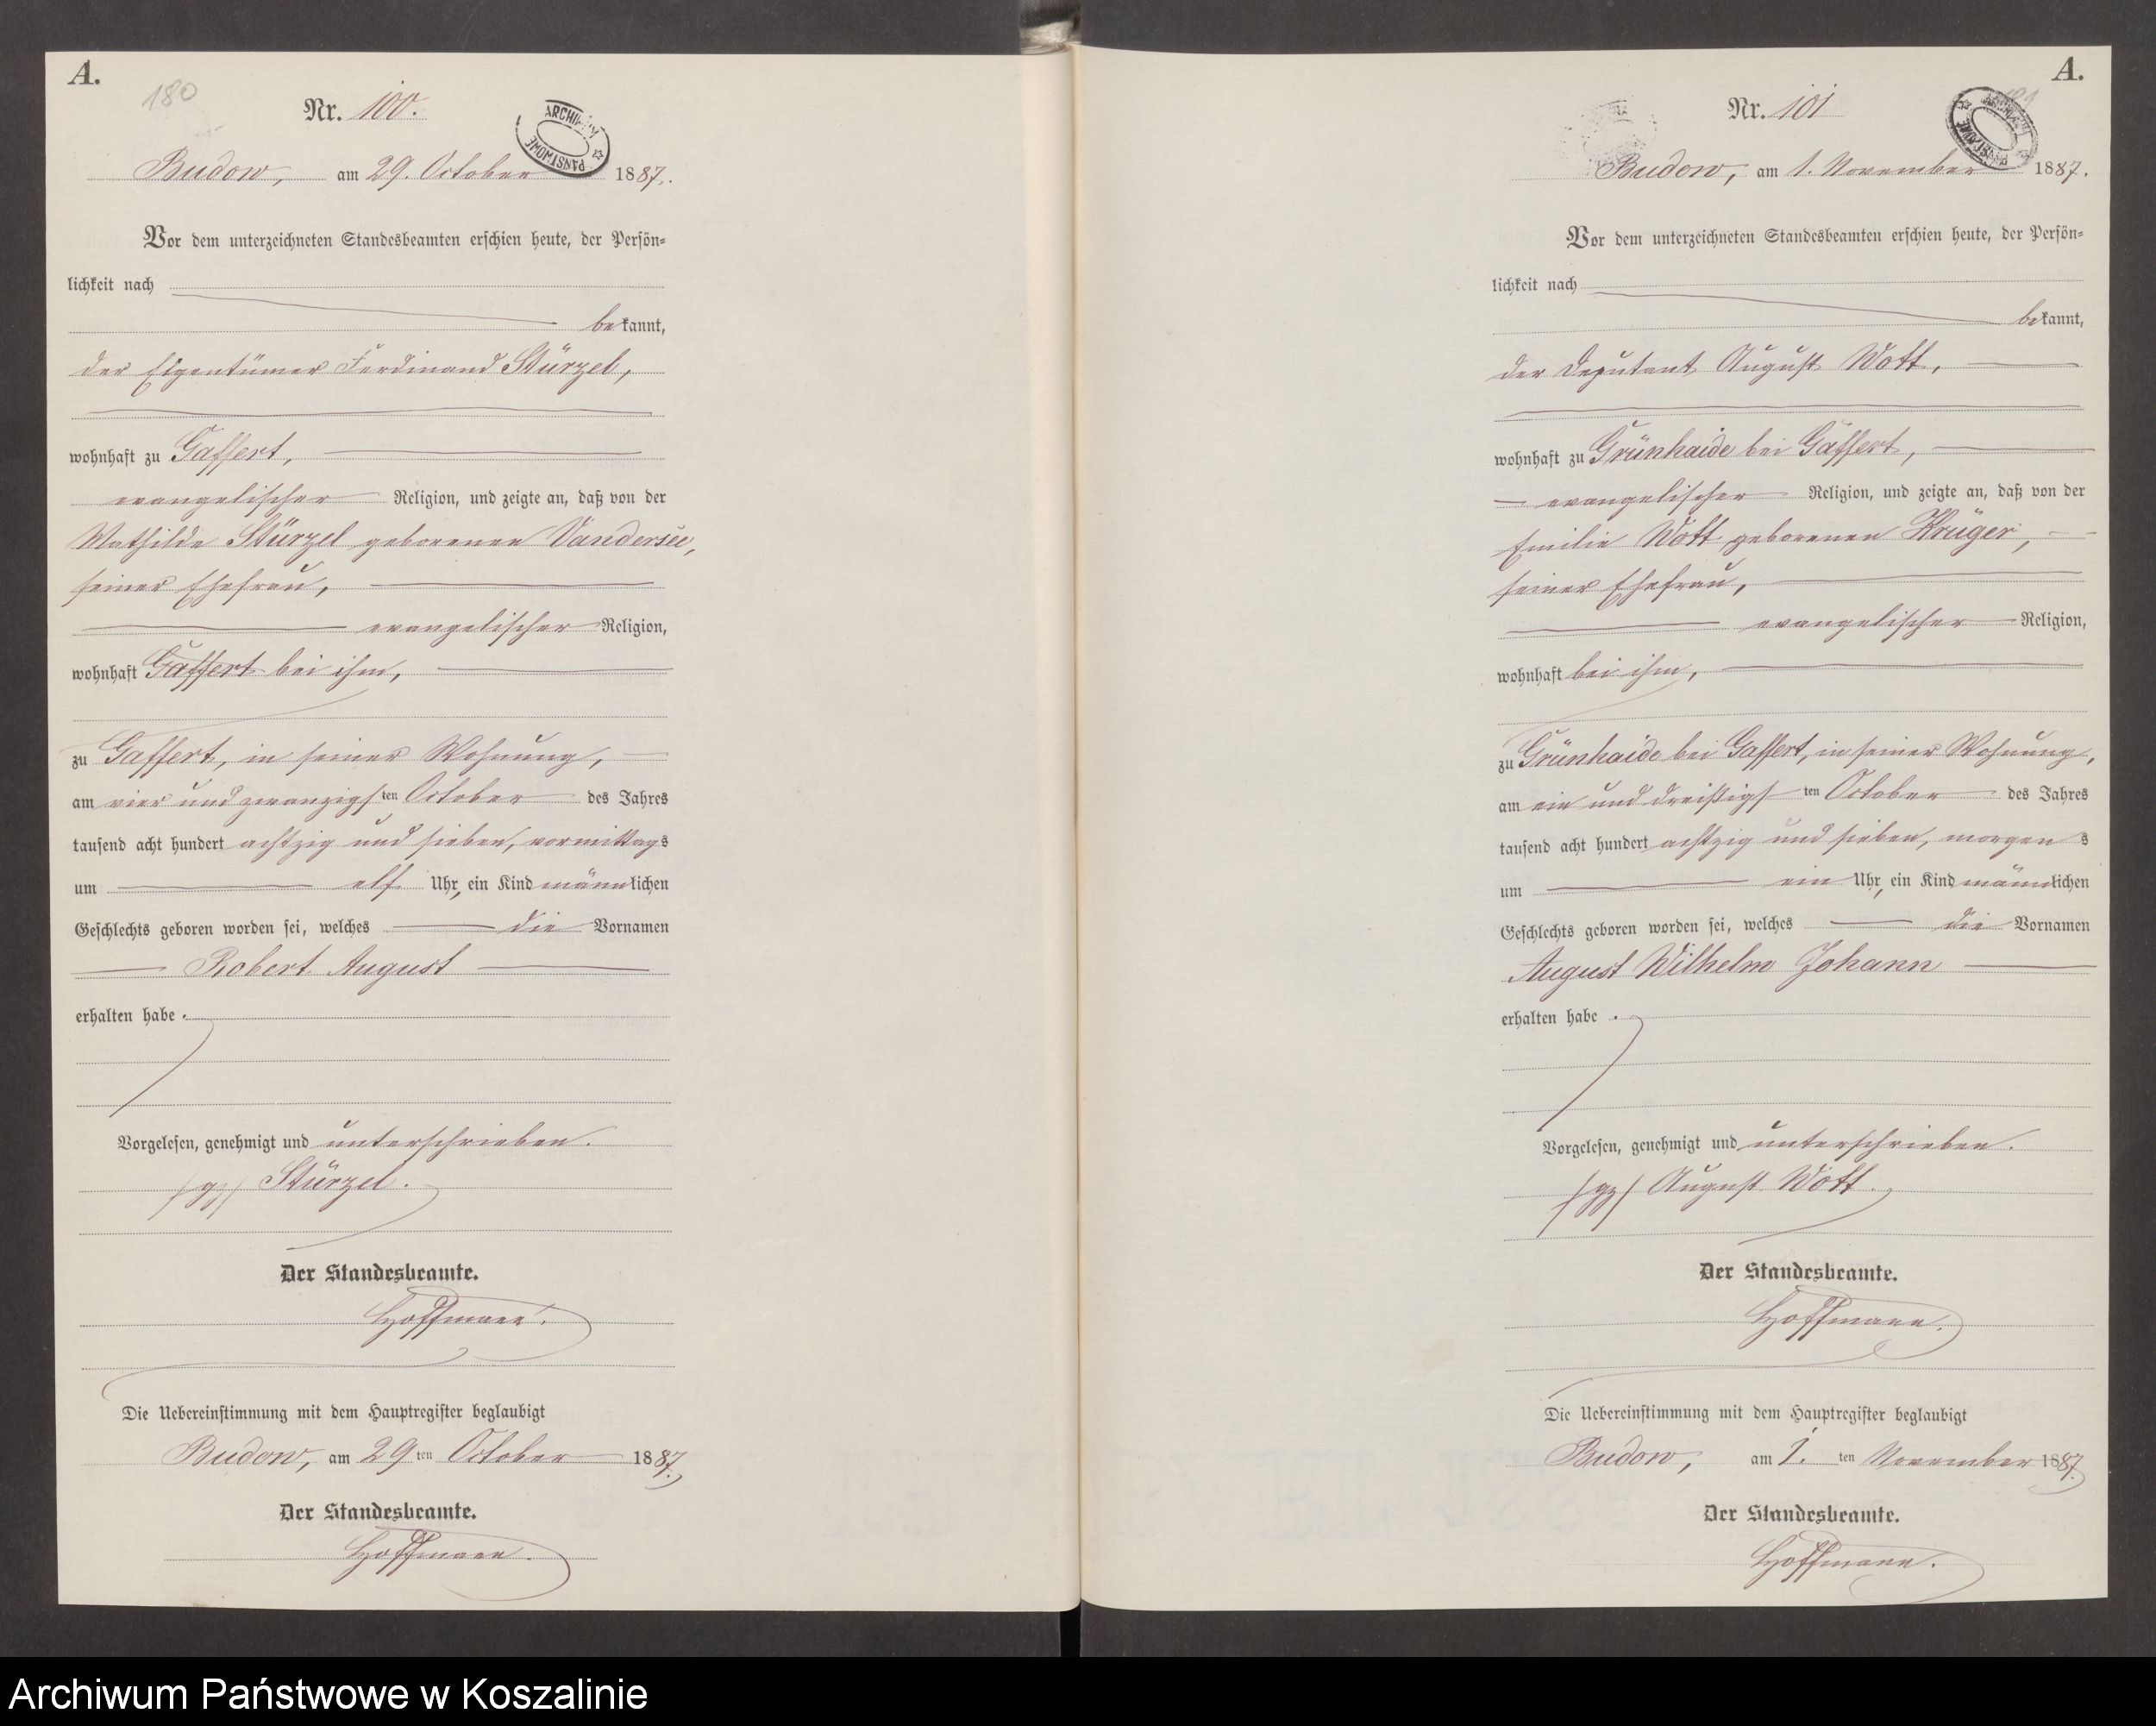 A.
180
Nr. 100.
ARCHIWUM PAŃSTWOWE
Budow, am 29. October 1887.
Vor dem unterzeichneten Standesbeamten erschien heute, der Persön-
lichkeit nach
bekannt,
der Eigentümer Ferdinand Stürzel,
wohnhaft zu Gaffert,
evangelischer Religion, und zeigte an, daß von der
Mathilde Stürzel geborenen Vandersee,
seiner Ehefrau,
evangelischer Religion,
wohnhaft Gaffert bei ihm,
zu Gaffert, in seiner Wohnung,
am vier und zwanzigsten October des Jahres
tausend acht hundert achtzig und sieben, vormittags
um elf Uhr, ein Kind männlichen
Geschlechts geboren worden sei, welches die Vornamen
Robert August
erhalten habe.
Vorgelesen, genehmigt und unterschrieben.
/gz/ Stürzel.
Der Standesbeamte.
Hoffmann.
Die Uebereinstimmung mit dem Hauptregister beglaubigt
Budow, am 29ten October 1887.
Der Standesbeamte.
Hoffmann.
A.
181
Nr. 101
ARCHIWUM PAŃSTWOWE
Budow, am 1. November 1887.
Vor dem unterzeichneten Standesbeamten erschien heute, der Persön-
lichkeit nach
bekannt,
der Deputant August Wott,
wohnhaft zu Grünhaide bei Gaffert,
evangelischer Religion, und zeigte an, daß von der
Emilie Wott geborenen Krüger,
seiner Ehefrau,
evangelischer Religion,
wohnhaft bei ihm,
zu Grünhaide bei Gaffert, in seiner Wohnung,
am ein und dreißigsten October des Jahres
tausend acht hundert achtzig und sieben, morgens
um ein Uhr, ein Kind männlichen
Geschlechts geboren worden sei, welches die Vornamen
August Wilhelm Johann
erhalten habe.
Vorgelesen, genehmigt und unterschrieben.
/gz/ August Wott.
Der Standesbeamte.
Hoffmann.
Die Uebereinstimmung mit dem Hauptregister beglaubigt
Budow, am 1.ten November 1887.
Der Standesbeamte.
Hoffmann.
Archiwum Państwowe w Koszalinie